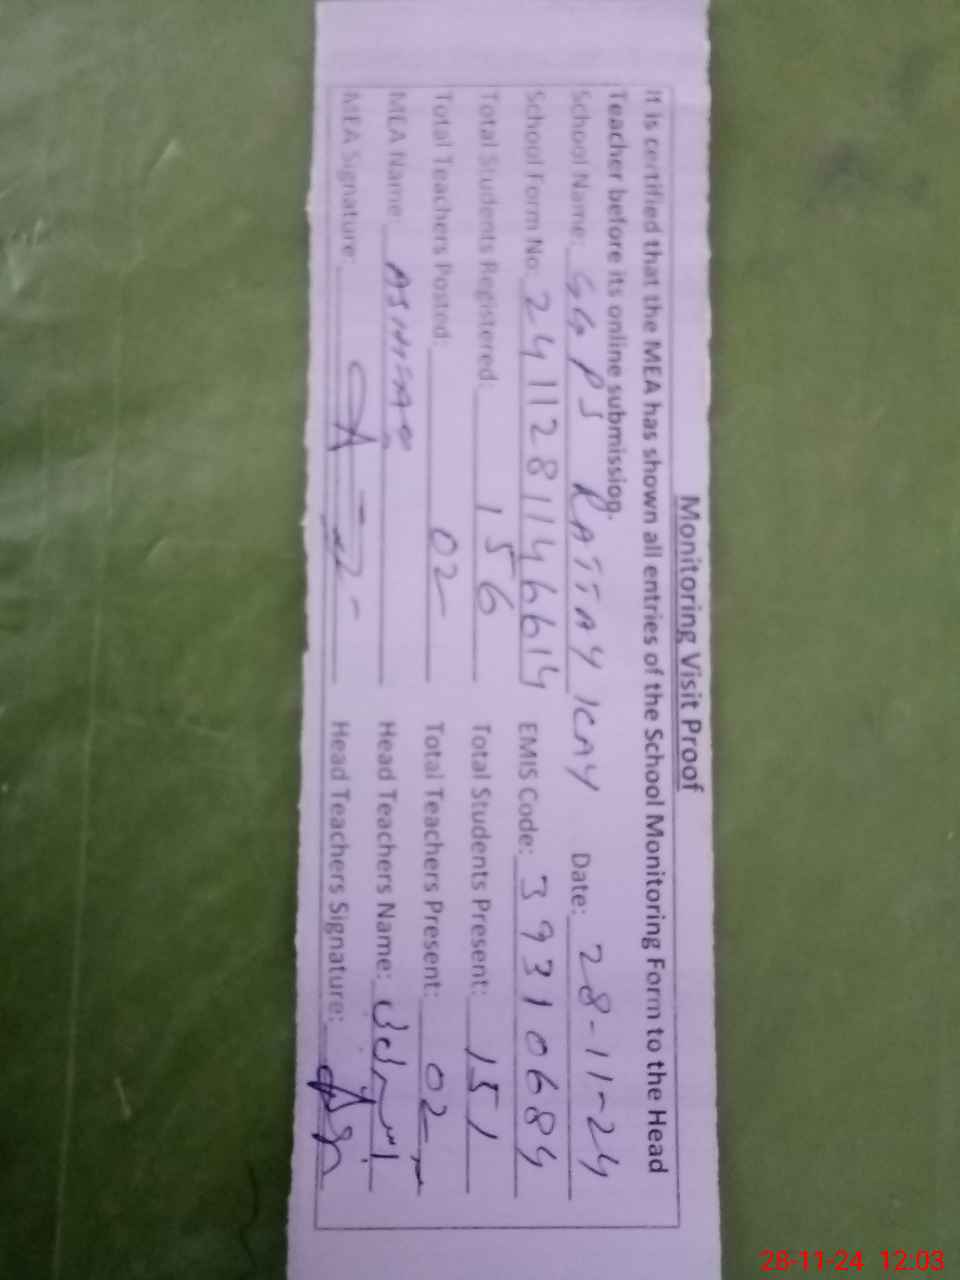 Monitoring Visit Proof
It is certified that the MEA has shown all entries of the School Monitoring Form to the Head
Teacher before its online submission.
School Name: GGPS RATTAY KAY Date: 28-11-24
School Form No: 2411281146614 EMIS Code: 39310684
Total Students Registered: 156 Total Students Present: 151
Total Teachers Posted: 02 Total Teachers Present: 02
MEA Name: ASHFAQ Head Teachers Name:
MEA Signature: Head Teachers Signature:
28-11-24 12:03